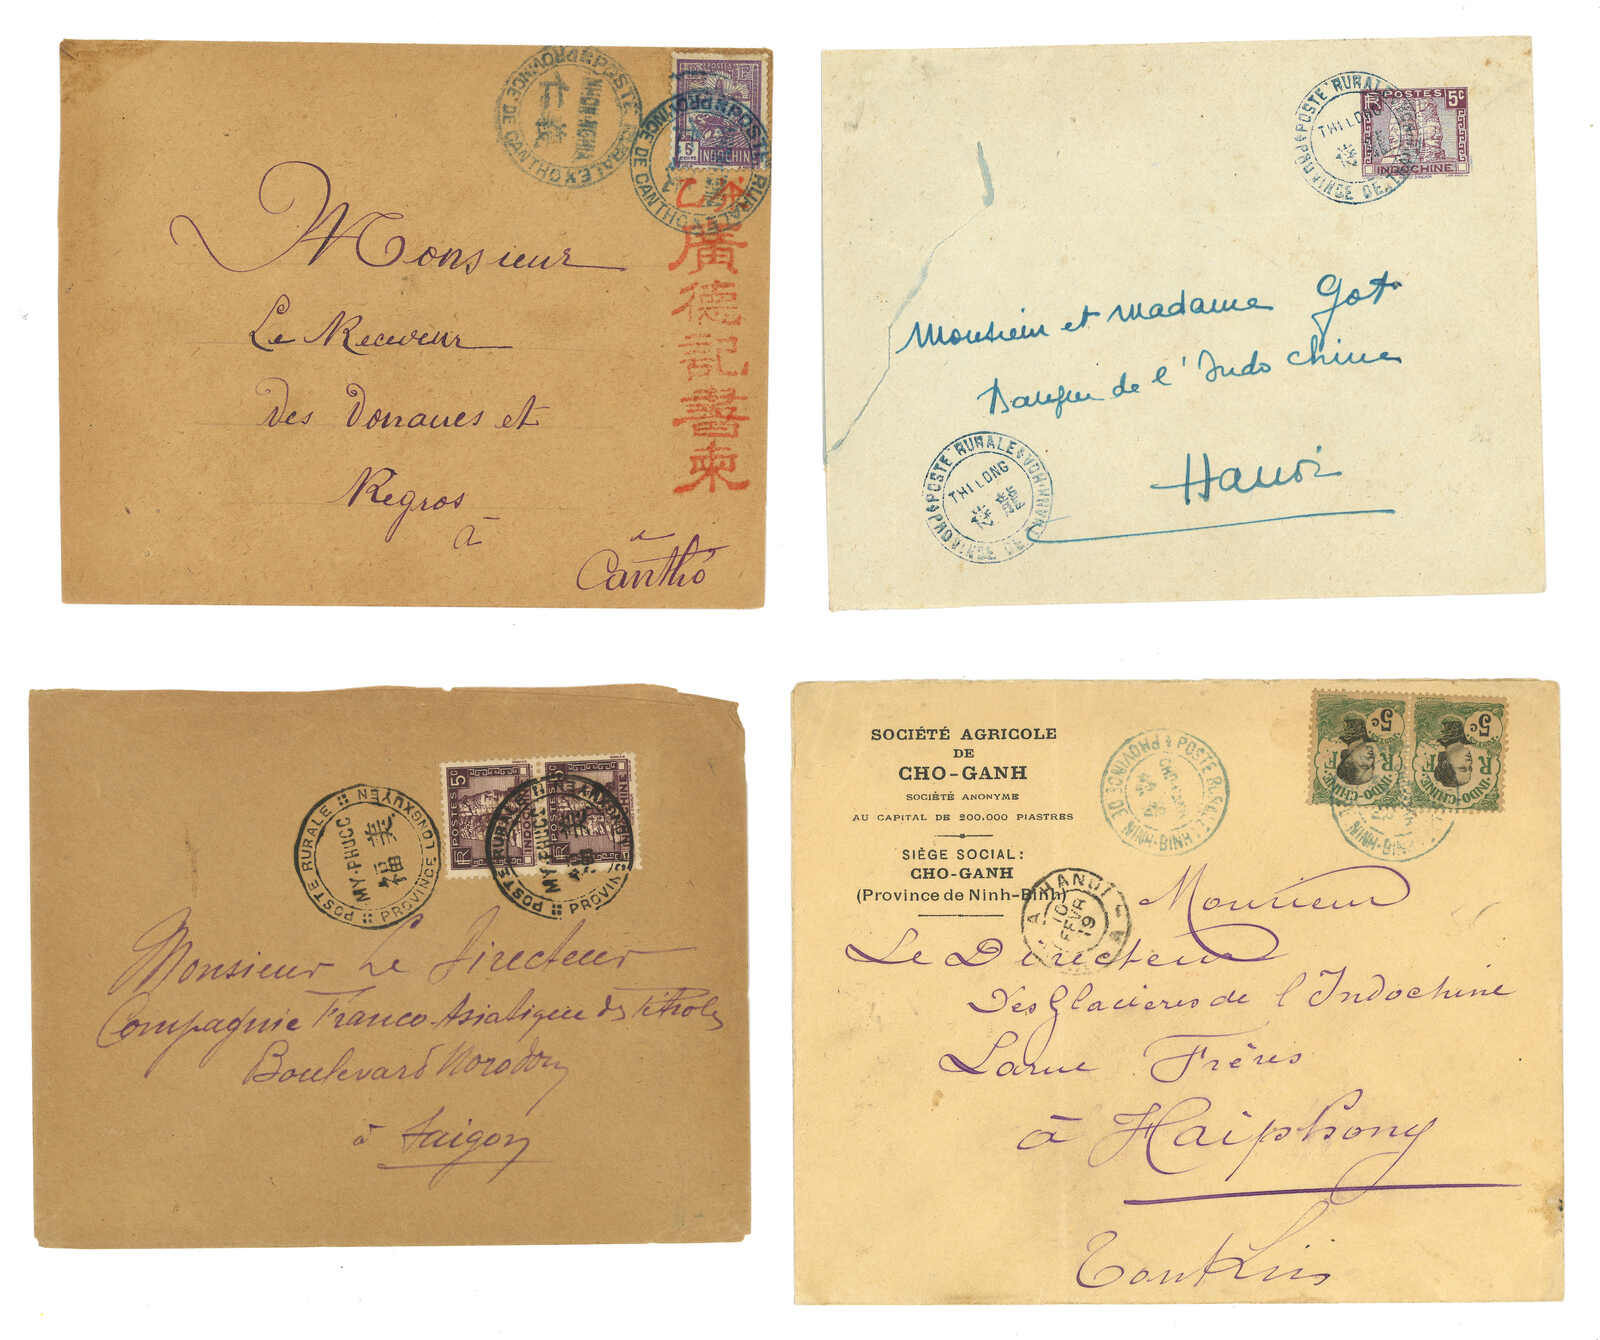 POSTE RURALE
NHON-NGHIA
仁義
PROVINCE DE CANTHO
POSTES
INDOCHINE
POSTE RURALE
PROVINCE DE CANTHO
廣
德
記
書
柬
Monsieur
Le Receveur
des Douanes et
Regies
à
Cantho
POSTES 5c
RF
INDOCHINE
POSTE RURALE
THI LONG
Monsieur et Madame
Banque de l'Indo chine
Hanoi
POSTE RURALE
THI LONG
PROVINCE DE
POSTE RURALE
MY-PHUOC
美福
PROVINCE LONGXUYEN
5c
POSTES
RF
INDOCHINE
POSTE RURALE
MY-PHUOC
美福
PROVINCE LONGXUYEN
Monsieur Le Directeur
Compagnie Franco-Asiatique des Pétroles
Boulevard Norodom
à Saigon
SOCIÉTÉ AGRICOLE
DE
CHO-GANH
SOCIÉTÉ ANONYME
AU CAPITAL DE 200.000 PIASTRES
SIÈGE SOCIAL:
CHO-GANH
(Province de Ninh-Binh)
POSTE RURALE
PROVINCE DE NINH-BINH
5c 5c
R F
INDO-CHINE
INDO-CHINE
NINH-BINH
HANOI
10
FEVR
19
Monsieur
Le Directeur
Des Glacières de l'Indochine
Larue Frères
à Haiphong
Tonkin